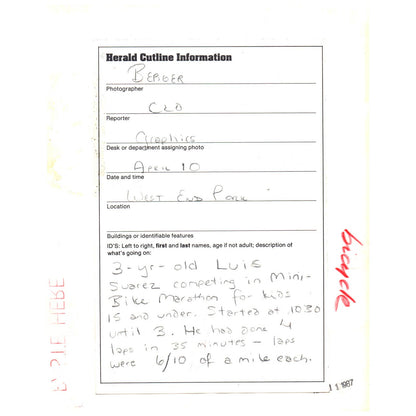 Herald Cutline Information
Photographer
CLO
Reporter
Graphics
Desk or department assigning photo
April 10
Date and time
West End Park
Location
Buildings or identifiable features
ID'S: Left to right, first and last names, age if not adult; description of
what's going on:
3-yr-old Luis
Suarez competing in Mini-
Bike Marathon for kids
15 and under. Started at 1030
until 3. He had done 4
laps in 35 minutes - laps
were 6/10 of a mile each.
bicycle
1987